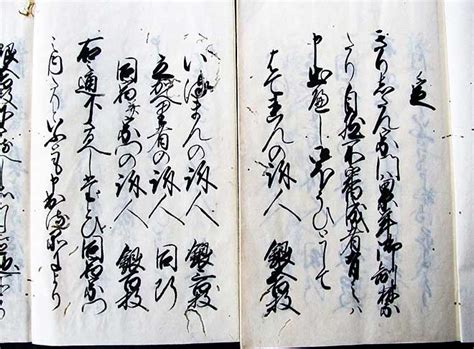 定
きりしたん宗門ハ累年御制禁
たり自然不審成者有之ハ
申出へし御ほうひとして
はてれんの訴人 銀五百枚
いるまんの訴人 銀三百枚
立かへり者の訴人 同断
同宿并宗門の訴人 銀百枚
右之通下さるへしたとひ同宿宗門
之内たりといふとも申出る品により